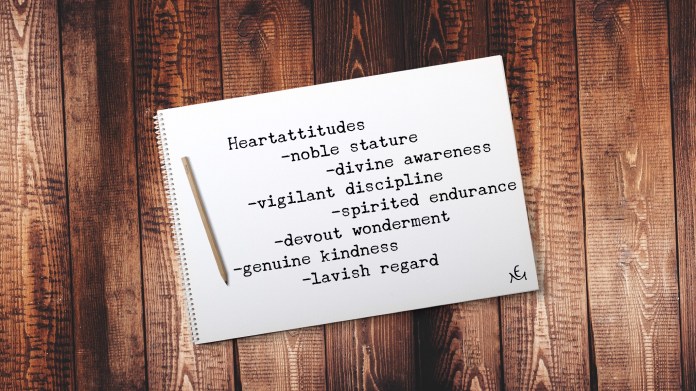 Heartattitudes
-noble stature
-divine awareness
-vigilant discipline
-spirited endurance
-devout wonderment
-genuine kindness
-lavish regard